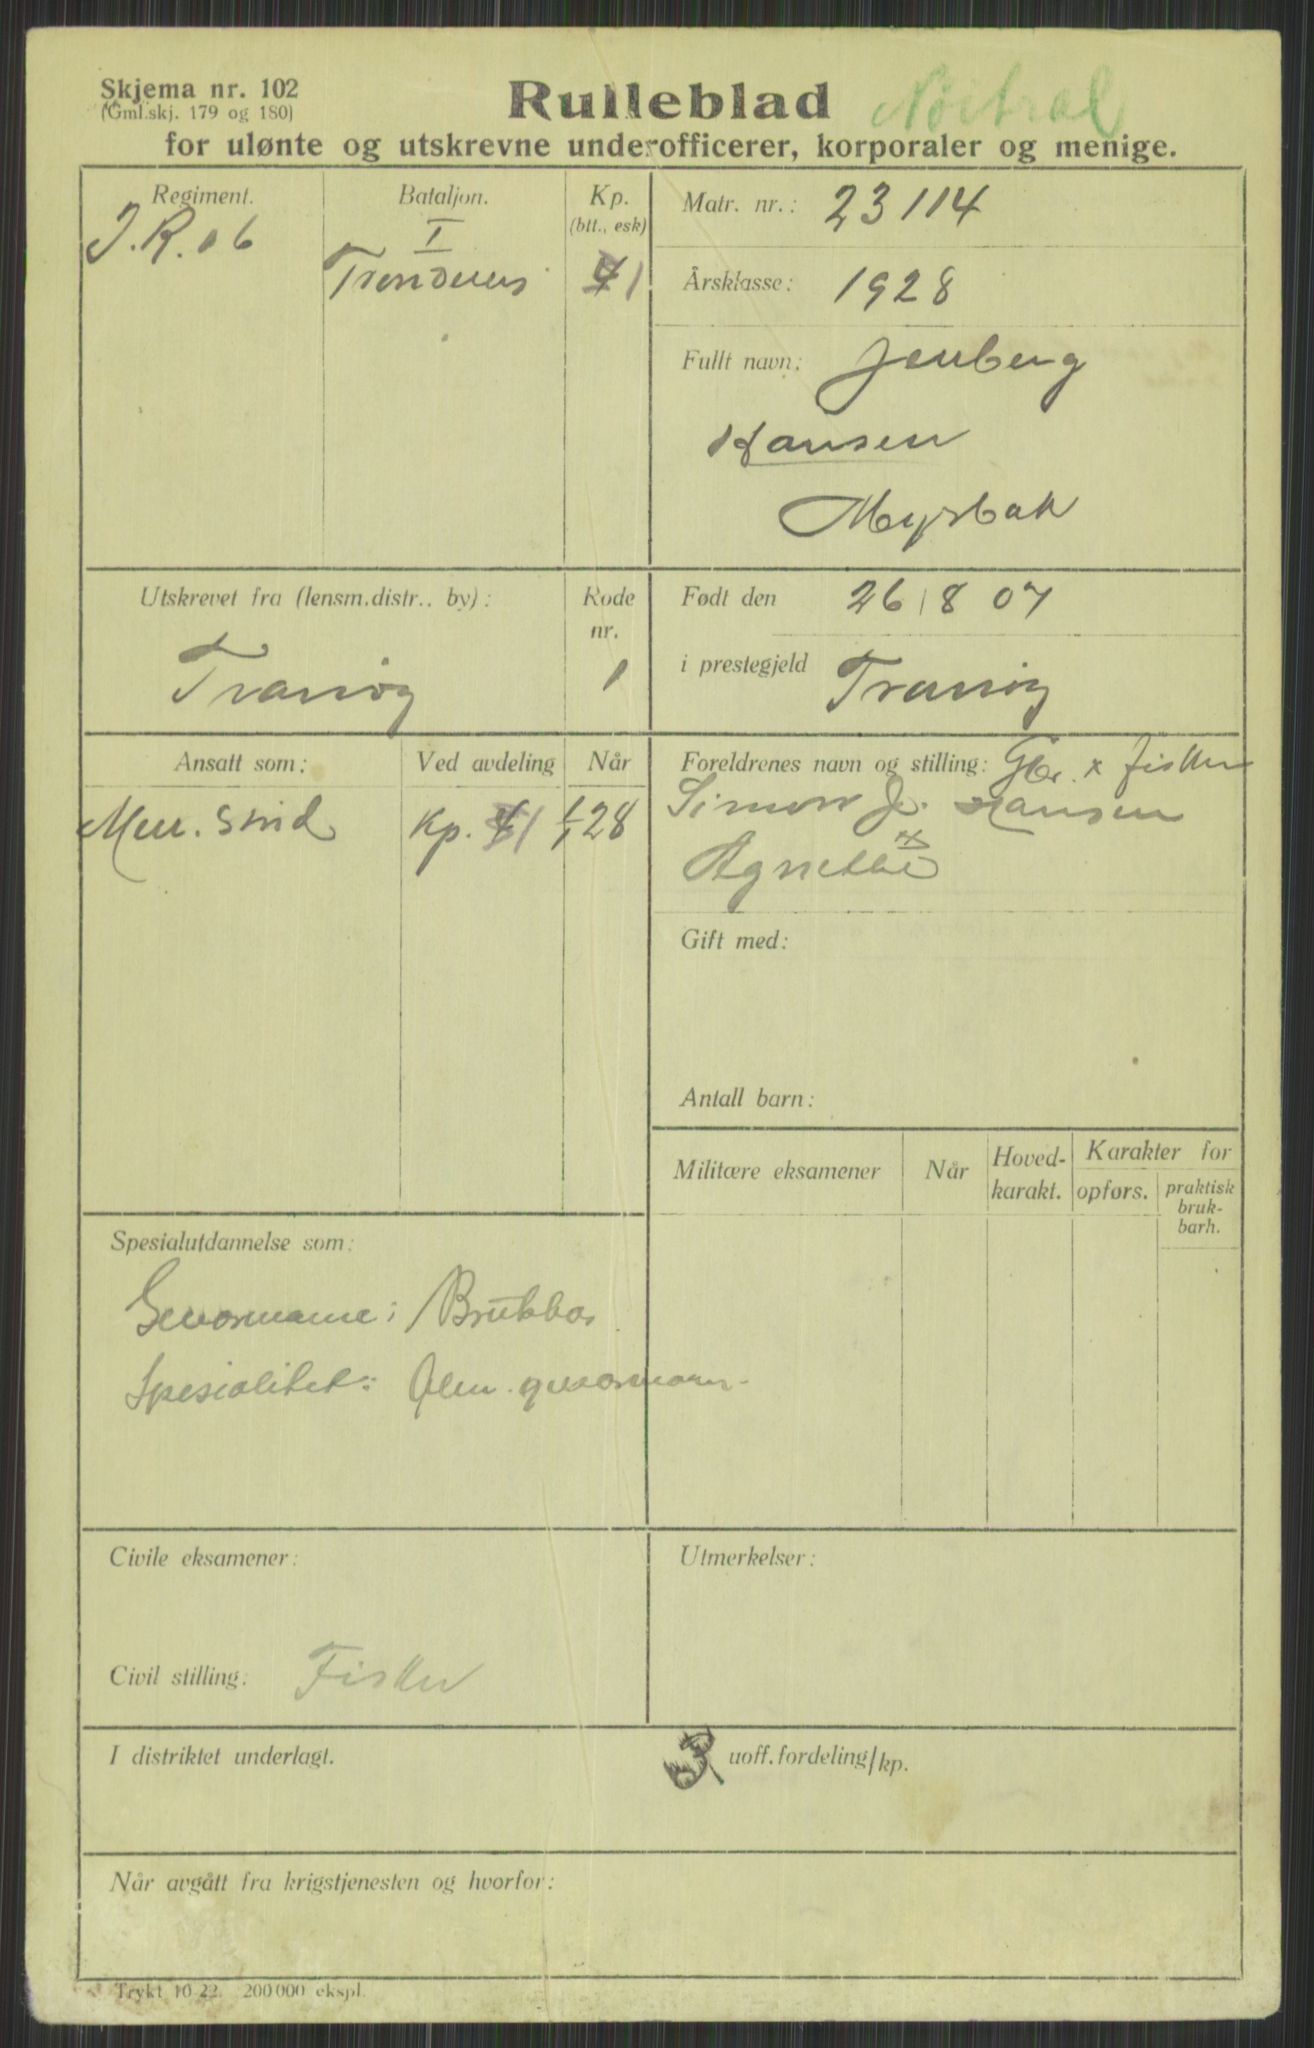 Skjema nr. 102
(Gml.skj. 179 og 180)
Rulleblad
Nöitral
for ulønte og utskrevne underofficerer, korporaler og menige.
Regiment. Bataljon. Kp. (btt., esk)
I.R. 16 I 1
Trondenes
Matr. nr.: 23114
Årsklasse: 1928
Fullt navn: Jenberg
Hansen
Myrbak
Utskrevet fra (lensm.distr., by): Rode nr.
Tranöy 1
Født den 26/8 07
i prestegjeld Tranöy
Ansatt som: Ved avdeling Når
Men. Sold Kp. 1 1/1 28
Foreldrenes navn og stilling: Gbr. x fisker
Simon J. Hansen
x
Agnethe
Gift med:
Antall barn:
Militære eksamener Når Hoved-karakt. Karakter for
opførs. praktisk bruk-barh.
Spesialutdannelse som:
Geværmann: Brukbar
Spesialitet: Alm. geværmann.
Civile eksamener:
Utmerkelser:
Civil stilling: Fisker
I distriktet underlagt. 3 uoff. fordeling/kp.
Når avgått fra krigstjenesten og hvorfor:
Trykt 10 22. 200 000 ekspl.